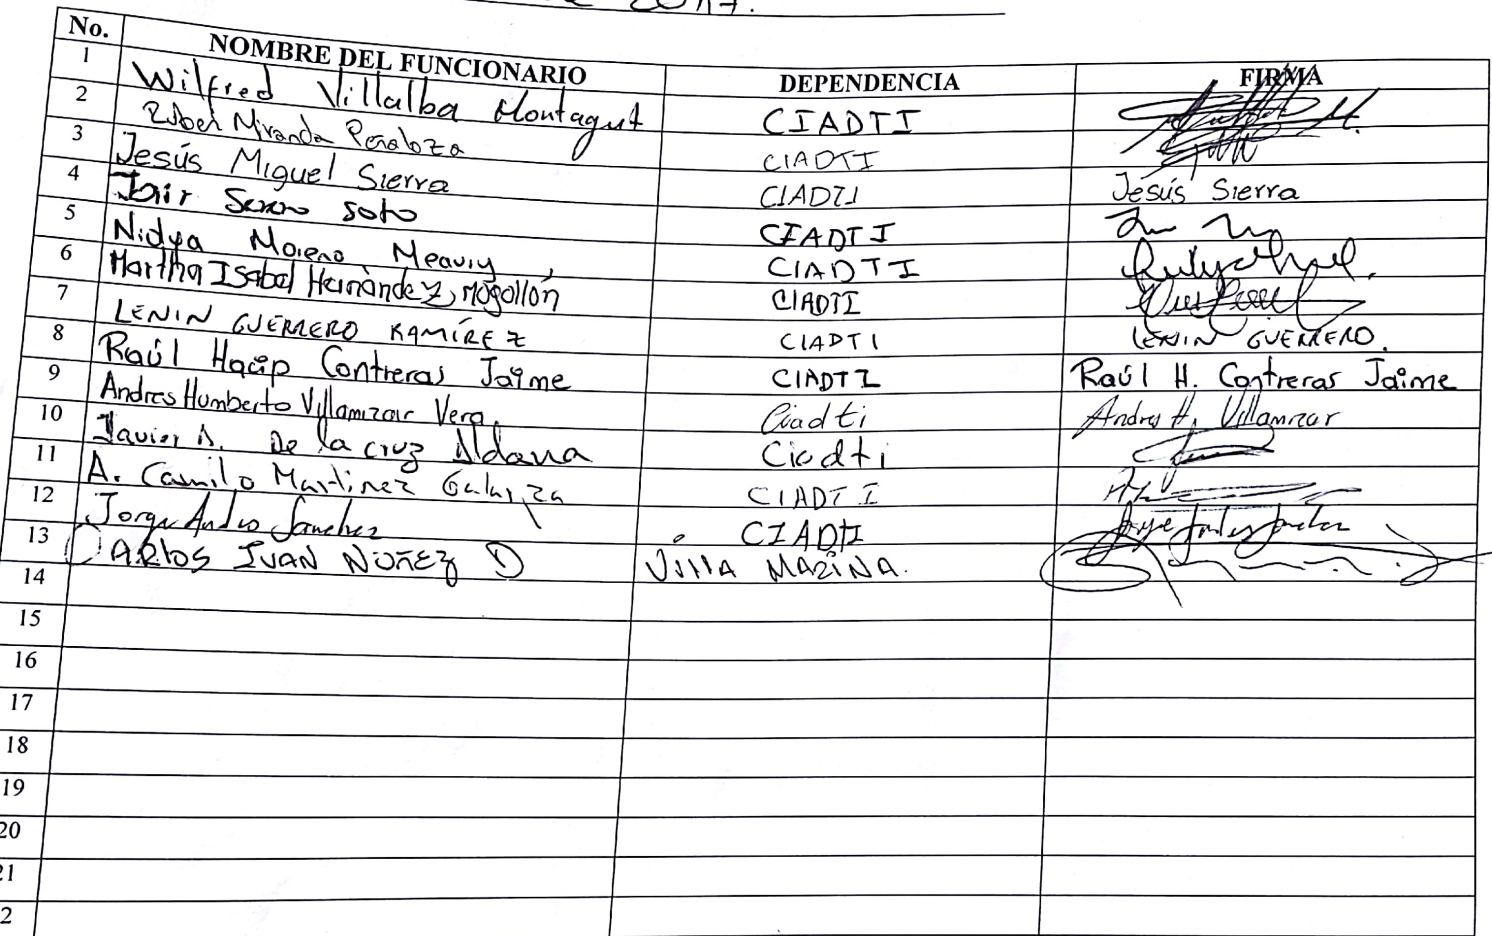 2017.
No. NOMBRE DEL FUNCIONARIO DEPENDENCIA FIRMA
1 Wilfred Villalba Montagut CIADTI
2 Ruber Miranda Peñaloza CIADTI
3 Jesús Miguel Sierra CIADTI Jesús Sierra
4 Jair Soto CIADTI
5 Nidya Moreno CIADTI
6 Martha Isabel Hernández Mogollón CIADTI
7 LENIN GUERRERO RAMÍREZ CIADTI LENIN GUERRERO.
8 Raúl Hacip Contreras Jaime CIADTI Raúl H. Contreras Jaime
9 Andres Humberto Villamizar Vera Ciadti Andres H. Villamizar
10 Javier D. De la cruz Aldana Ciadti
11 A. Camilo Martinez CIADTI
12 Jorge Andres Sanchez CIADTI
13 CARlOS IVAN NÚÑEZ D VillA MARiNA.
14
15
16
17
18
19
20
21
2